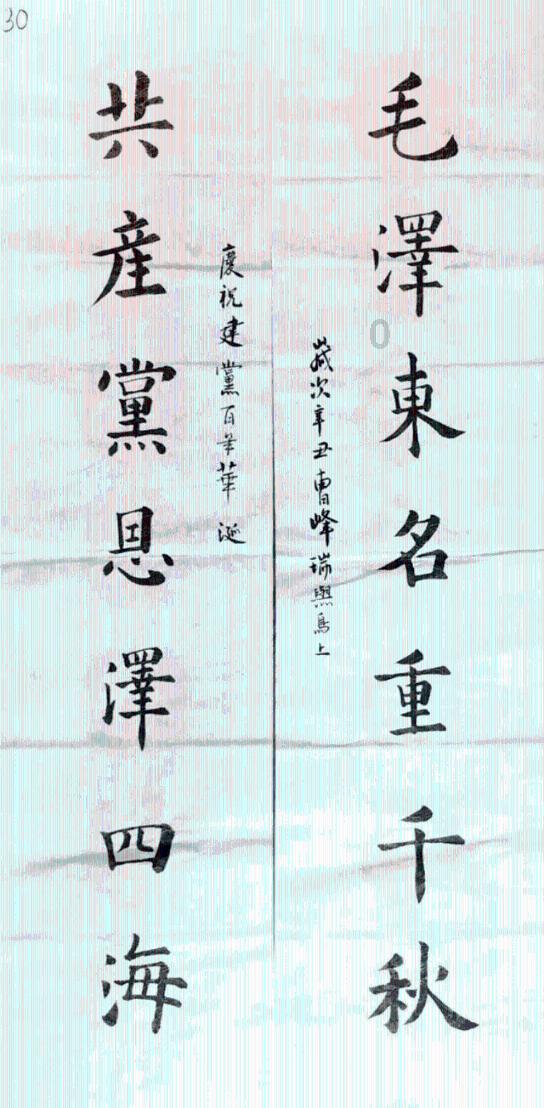 30
毛澤東名重千秋
歲次辛丑曹峰瑞與烏上
慶祝建黨百年華誕
共産黨恩澤四海